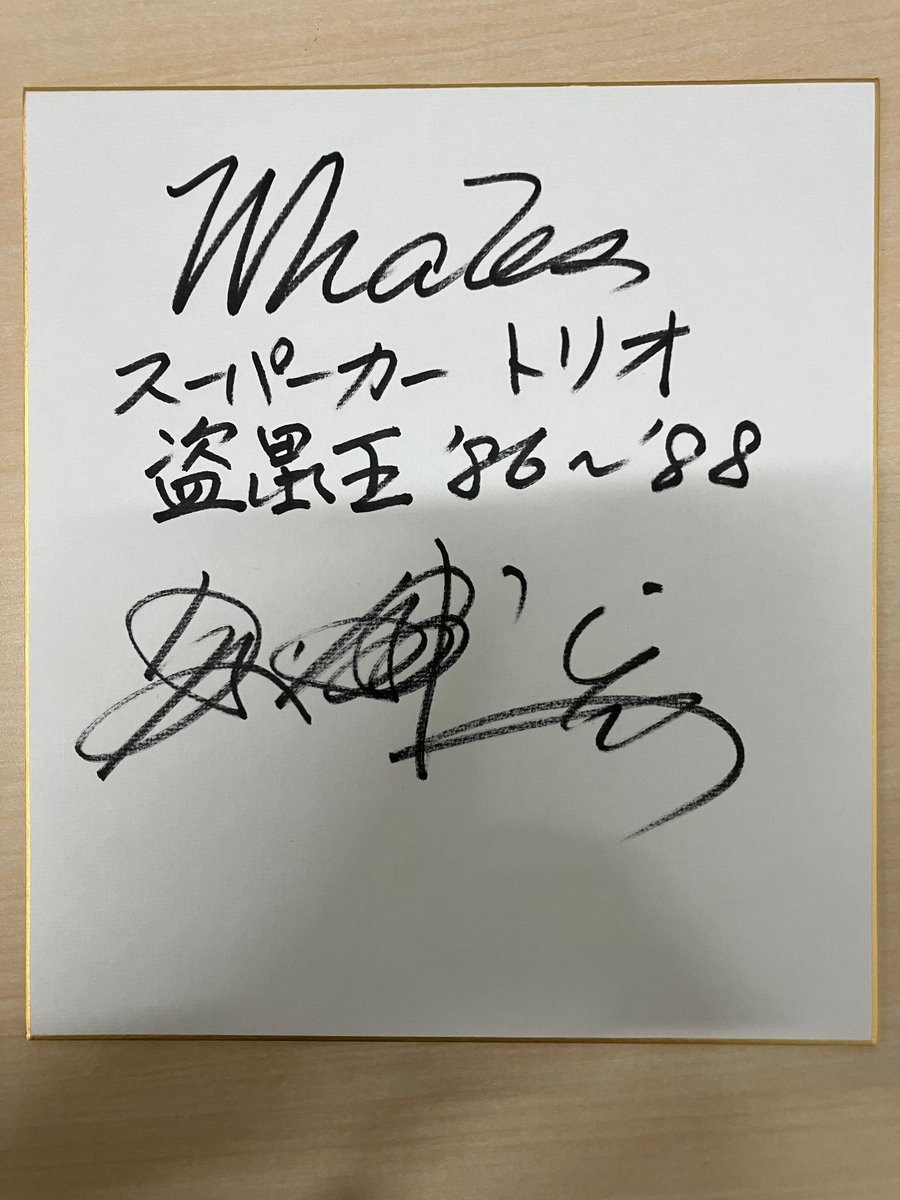 Whales
スーパーカートリオ
盗塁王 '86~'88